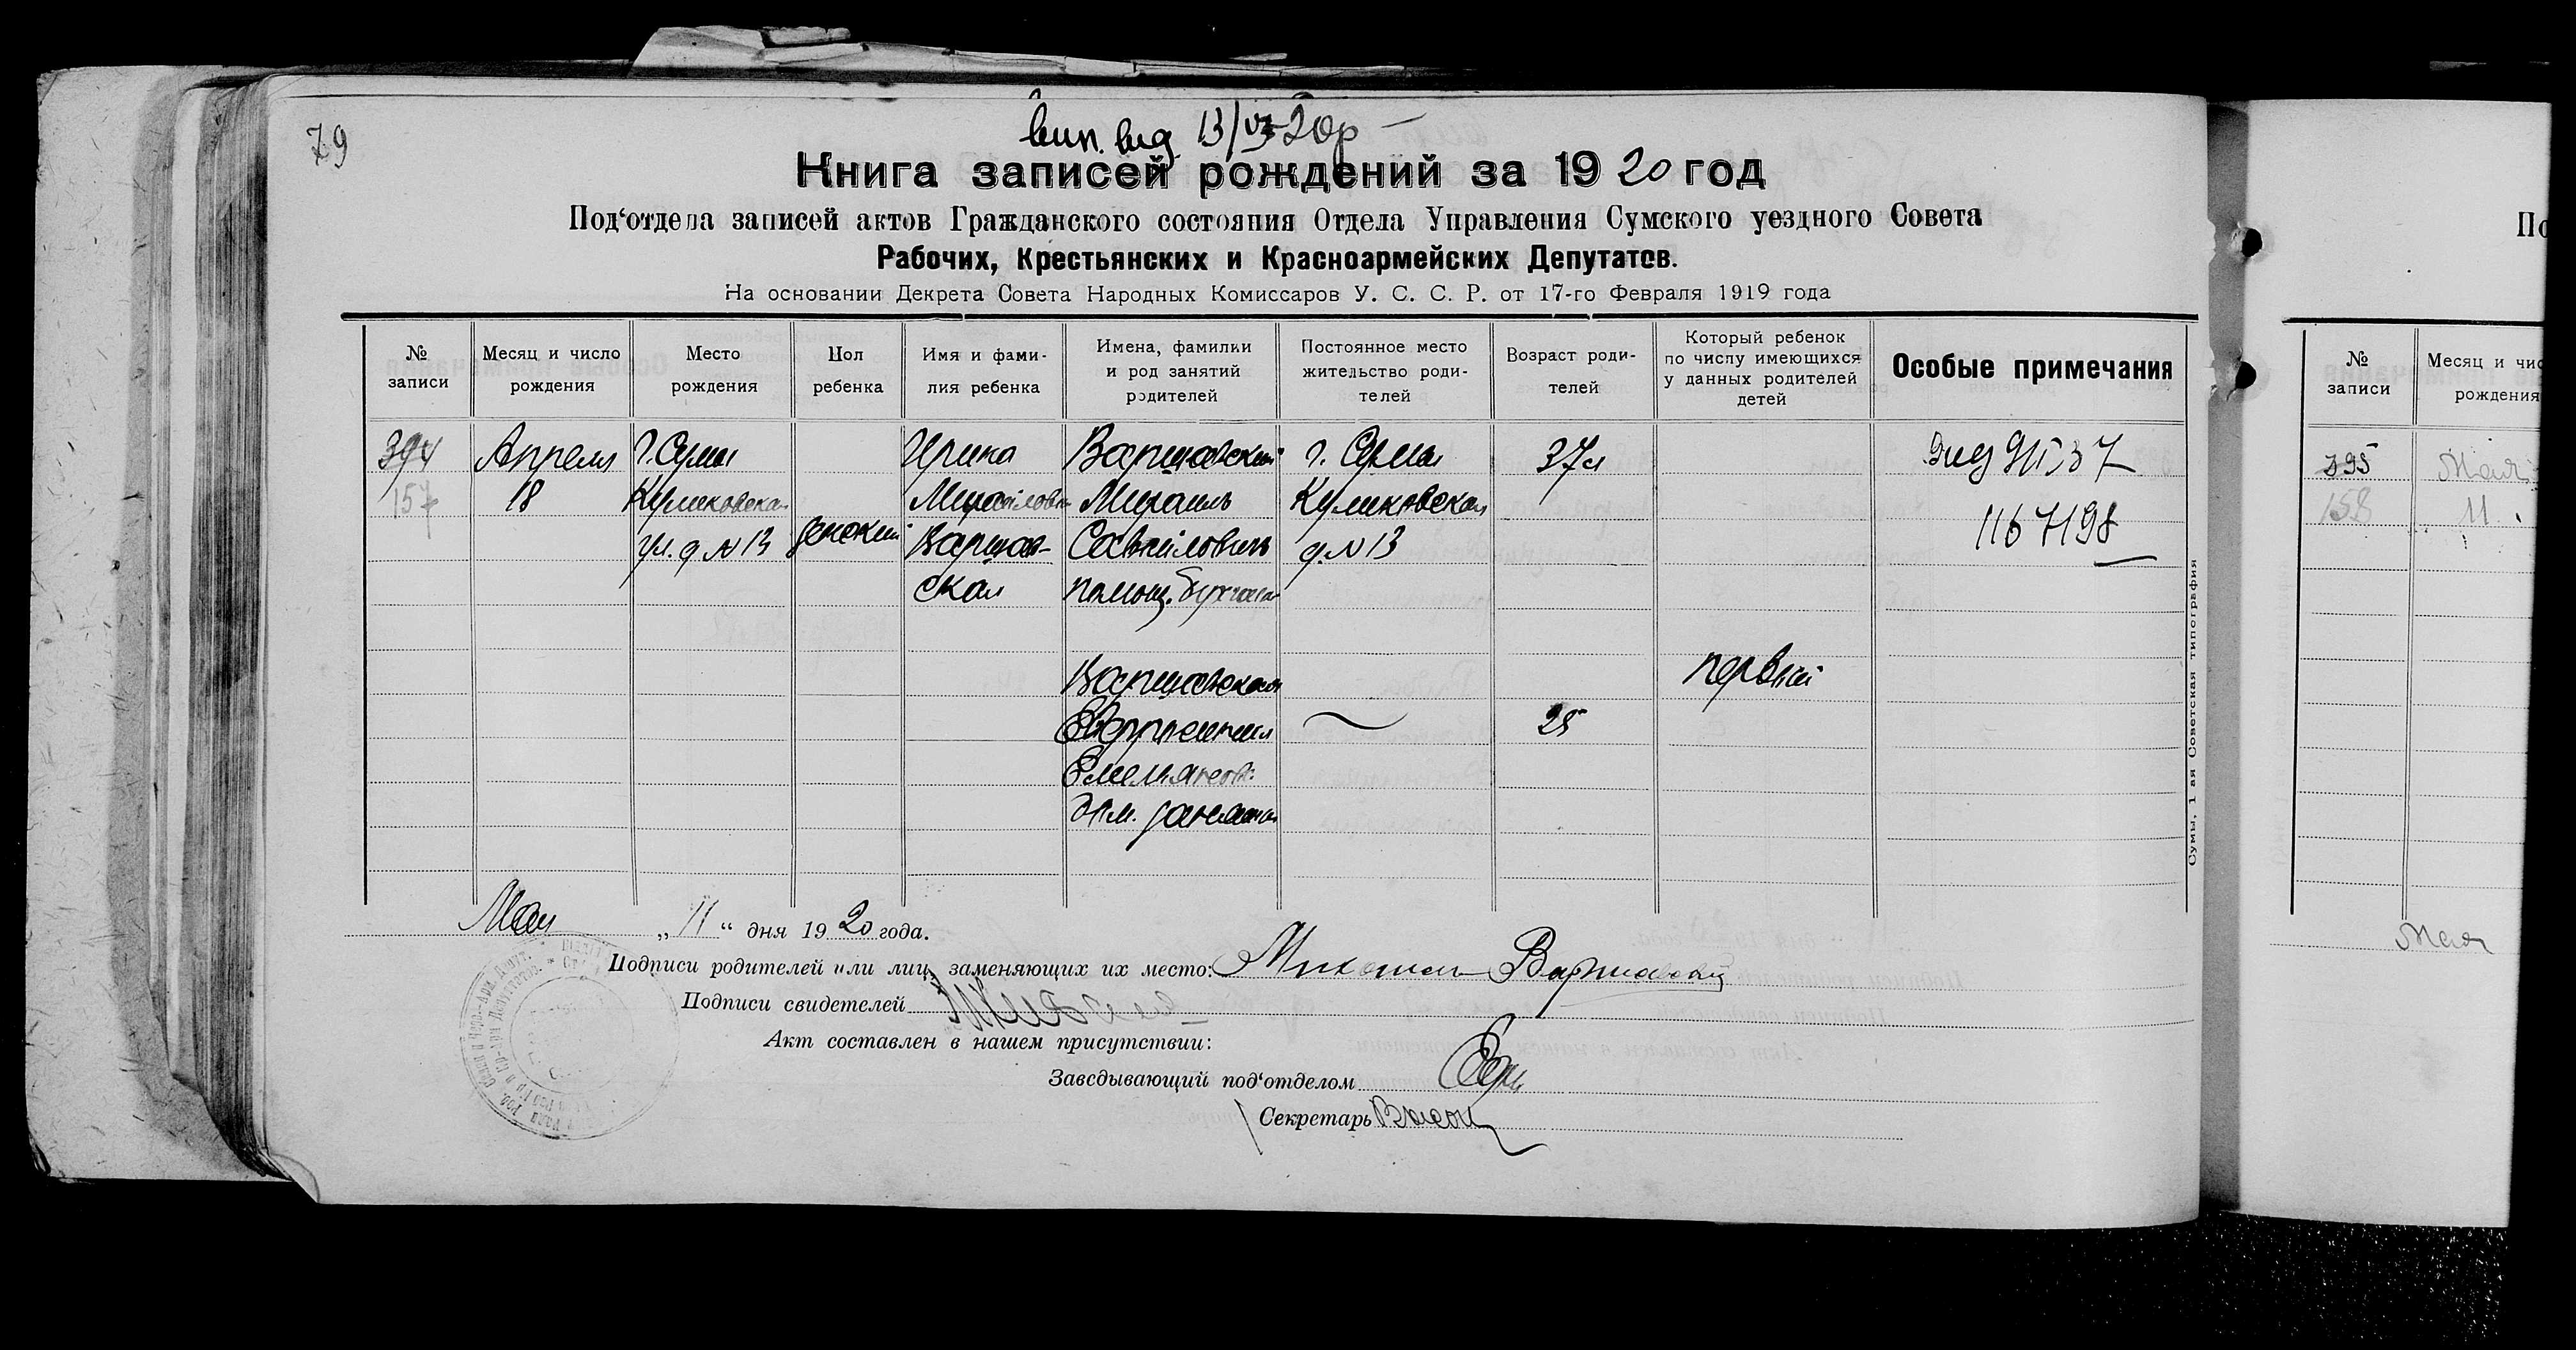 79
вип. вид. 13/VI 20р
Книга записей рождений за 1920 год
Под‘отдела записей актов Гражданского состояния Отдела Управления Сумского уездного Совета
Рабочих, Крестьянских и Красноармейских Депутатов.
На основании Декрета Совета Народных Комиссаров У. С. С. Р. от 17-го Февраля 1919 года
№ записи
Месяц и число рождения
Место рождения
Пол ребенка
Имя и фами-
лия ребенка
Имена, фамилии
и род занятий
родителей
Постоянное место
жительство роди-
телей
Возраст роди-
телей
Который ребенок
по числу имеющихся
у данных родителей
детей
Особые примечания
394
157
Апреля
18
г. Сумы
Куликовская
ул. д № 13
женский
Ирина
Михайловна
Варшав-
ская
Варшавский
Михаил
Савельевич
помощ. бухгал
Варшавская
Евфросиния
Емельянов.
дом. занятия
г. Сумы
Куликовская
д. № 13
37 л
25
первый
1167198
Сумы, 1 ая Советская типография
Мая „11“ дня 1920 года.
Подписи родителей или лиц, заменяющих их место: Михаил Варшавский
Подписи свидетелей
Акт составлен в нашем присутствии:
Заведывающий под‘отделом
Секретарь
По
№ записи
Месяц и чис
рождения
395
158
Мая
11
Мая